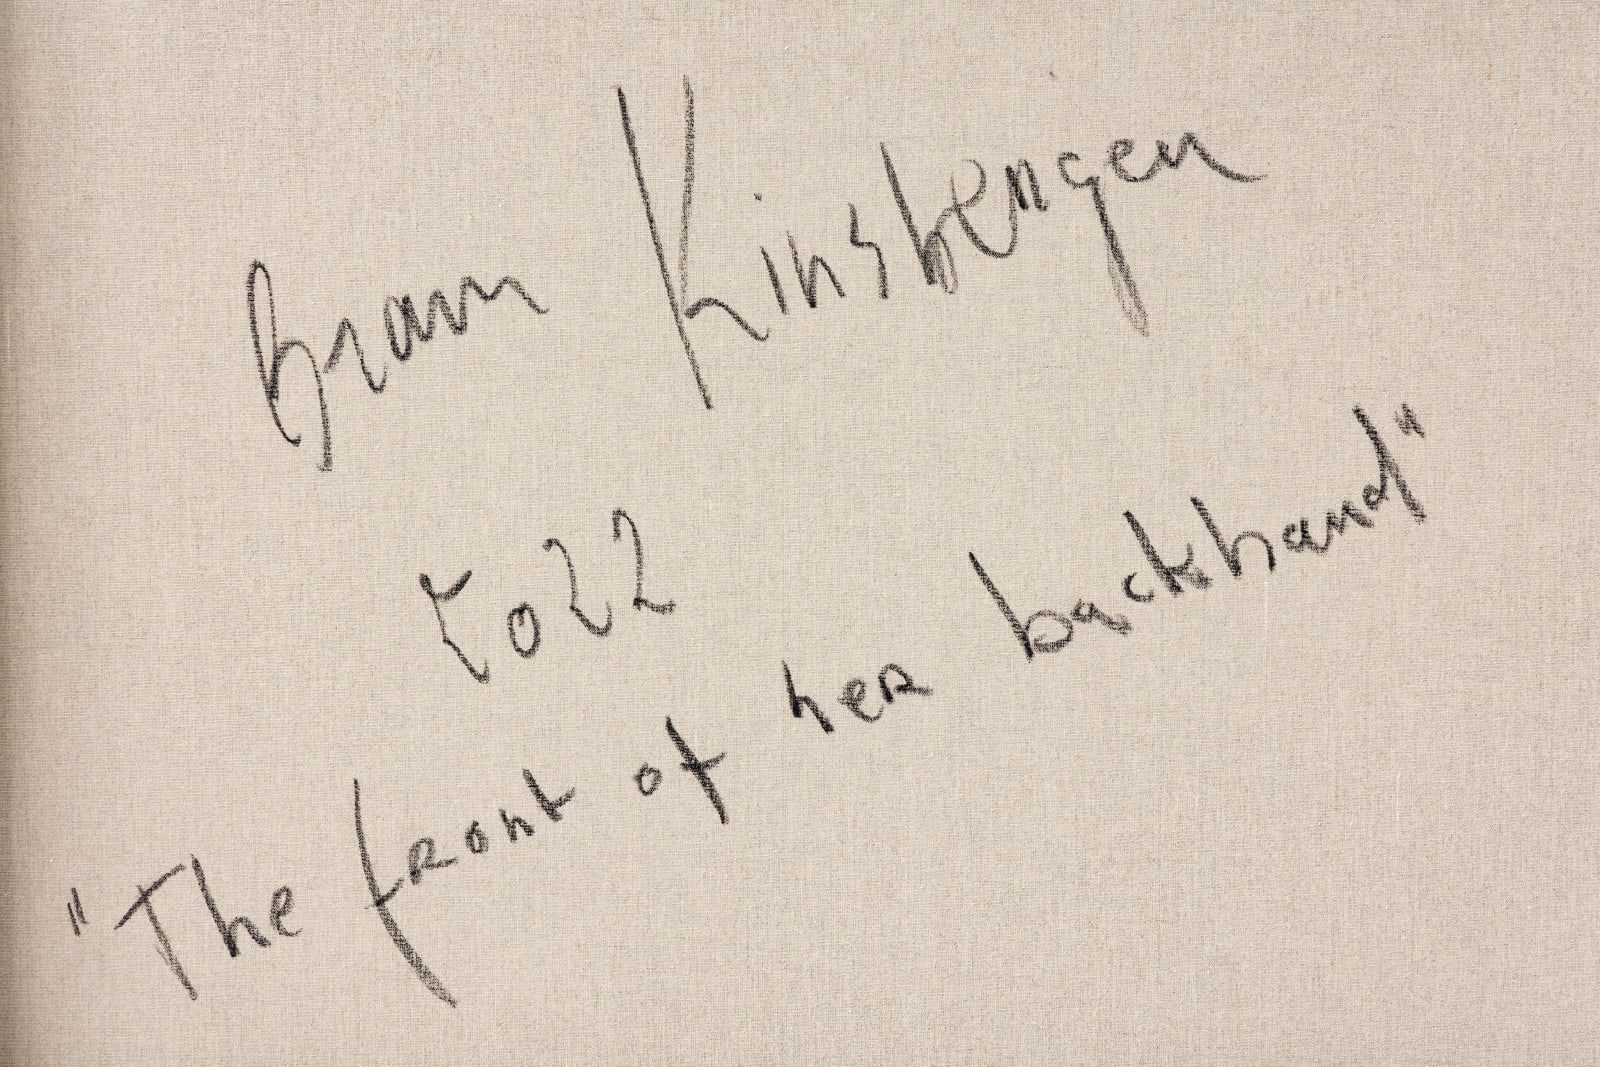 Bram Kinsbergen
2022
"The front of her backhand"